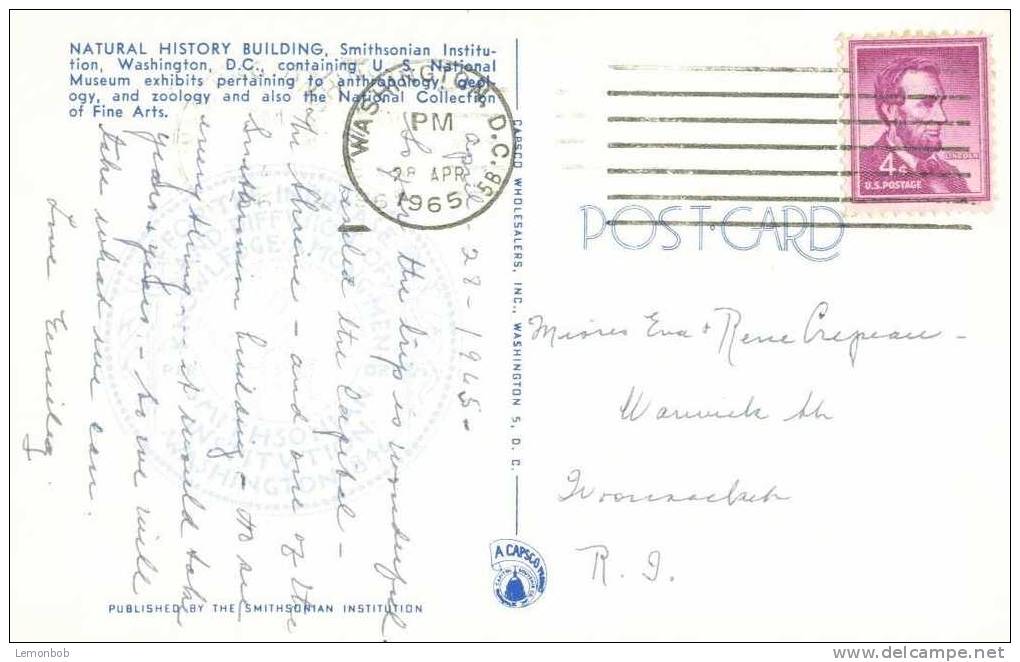 NATURAL HISTORY BUILDING, Smithsonian Institu-
tion, Washington, D.C., containing U. S. National
Museum exhibits pertaining to anthropology, geol-
ogy, and zoology and also the National Collection
of Fine Arts.
WASHINGTON, D.C.
PM
28 APR
1965
5B
4¢
LINCOLN
U.S. POSTAGE
POST CARD
april - 28-1965-
So far the trip is wonderful
visited the Capitol -
the Shrine - and one of the
Smithsonian building - to see
every thing - it would take
years & years - so we will
take what we can.
Love
Misses Eva & Rene Crepeau -
Warwick St
Woonsocket
R. I.
CAPSCO WHOLESALERS, INC., WASHINGTON 5, D. C.
A CAPSCO
SMITHSONIAN
INSTITUTION
WASHINGTON 1846
PUBLISHED BY THE SMITHSONIAN INSTITUTION
Lemonbob
delcampe.net